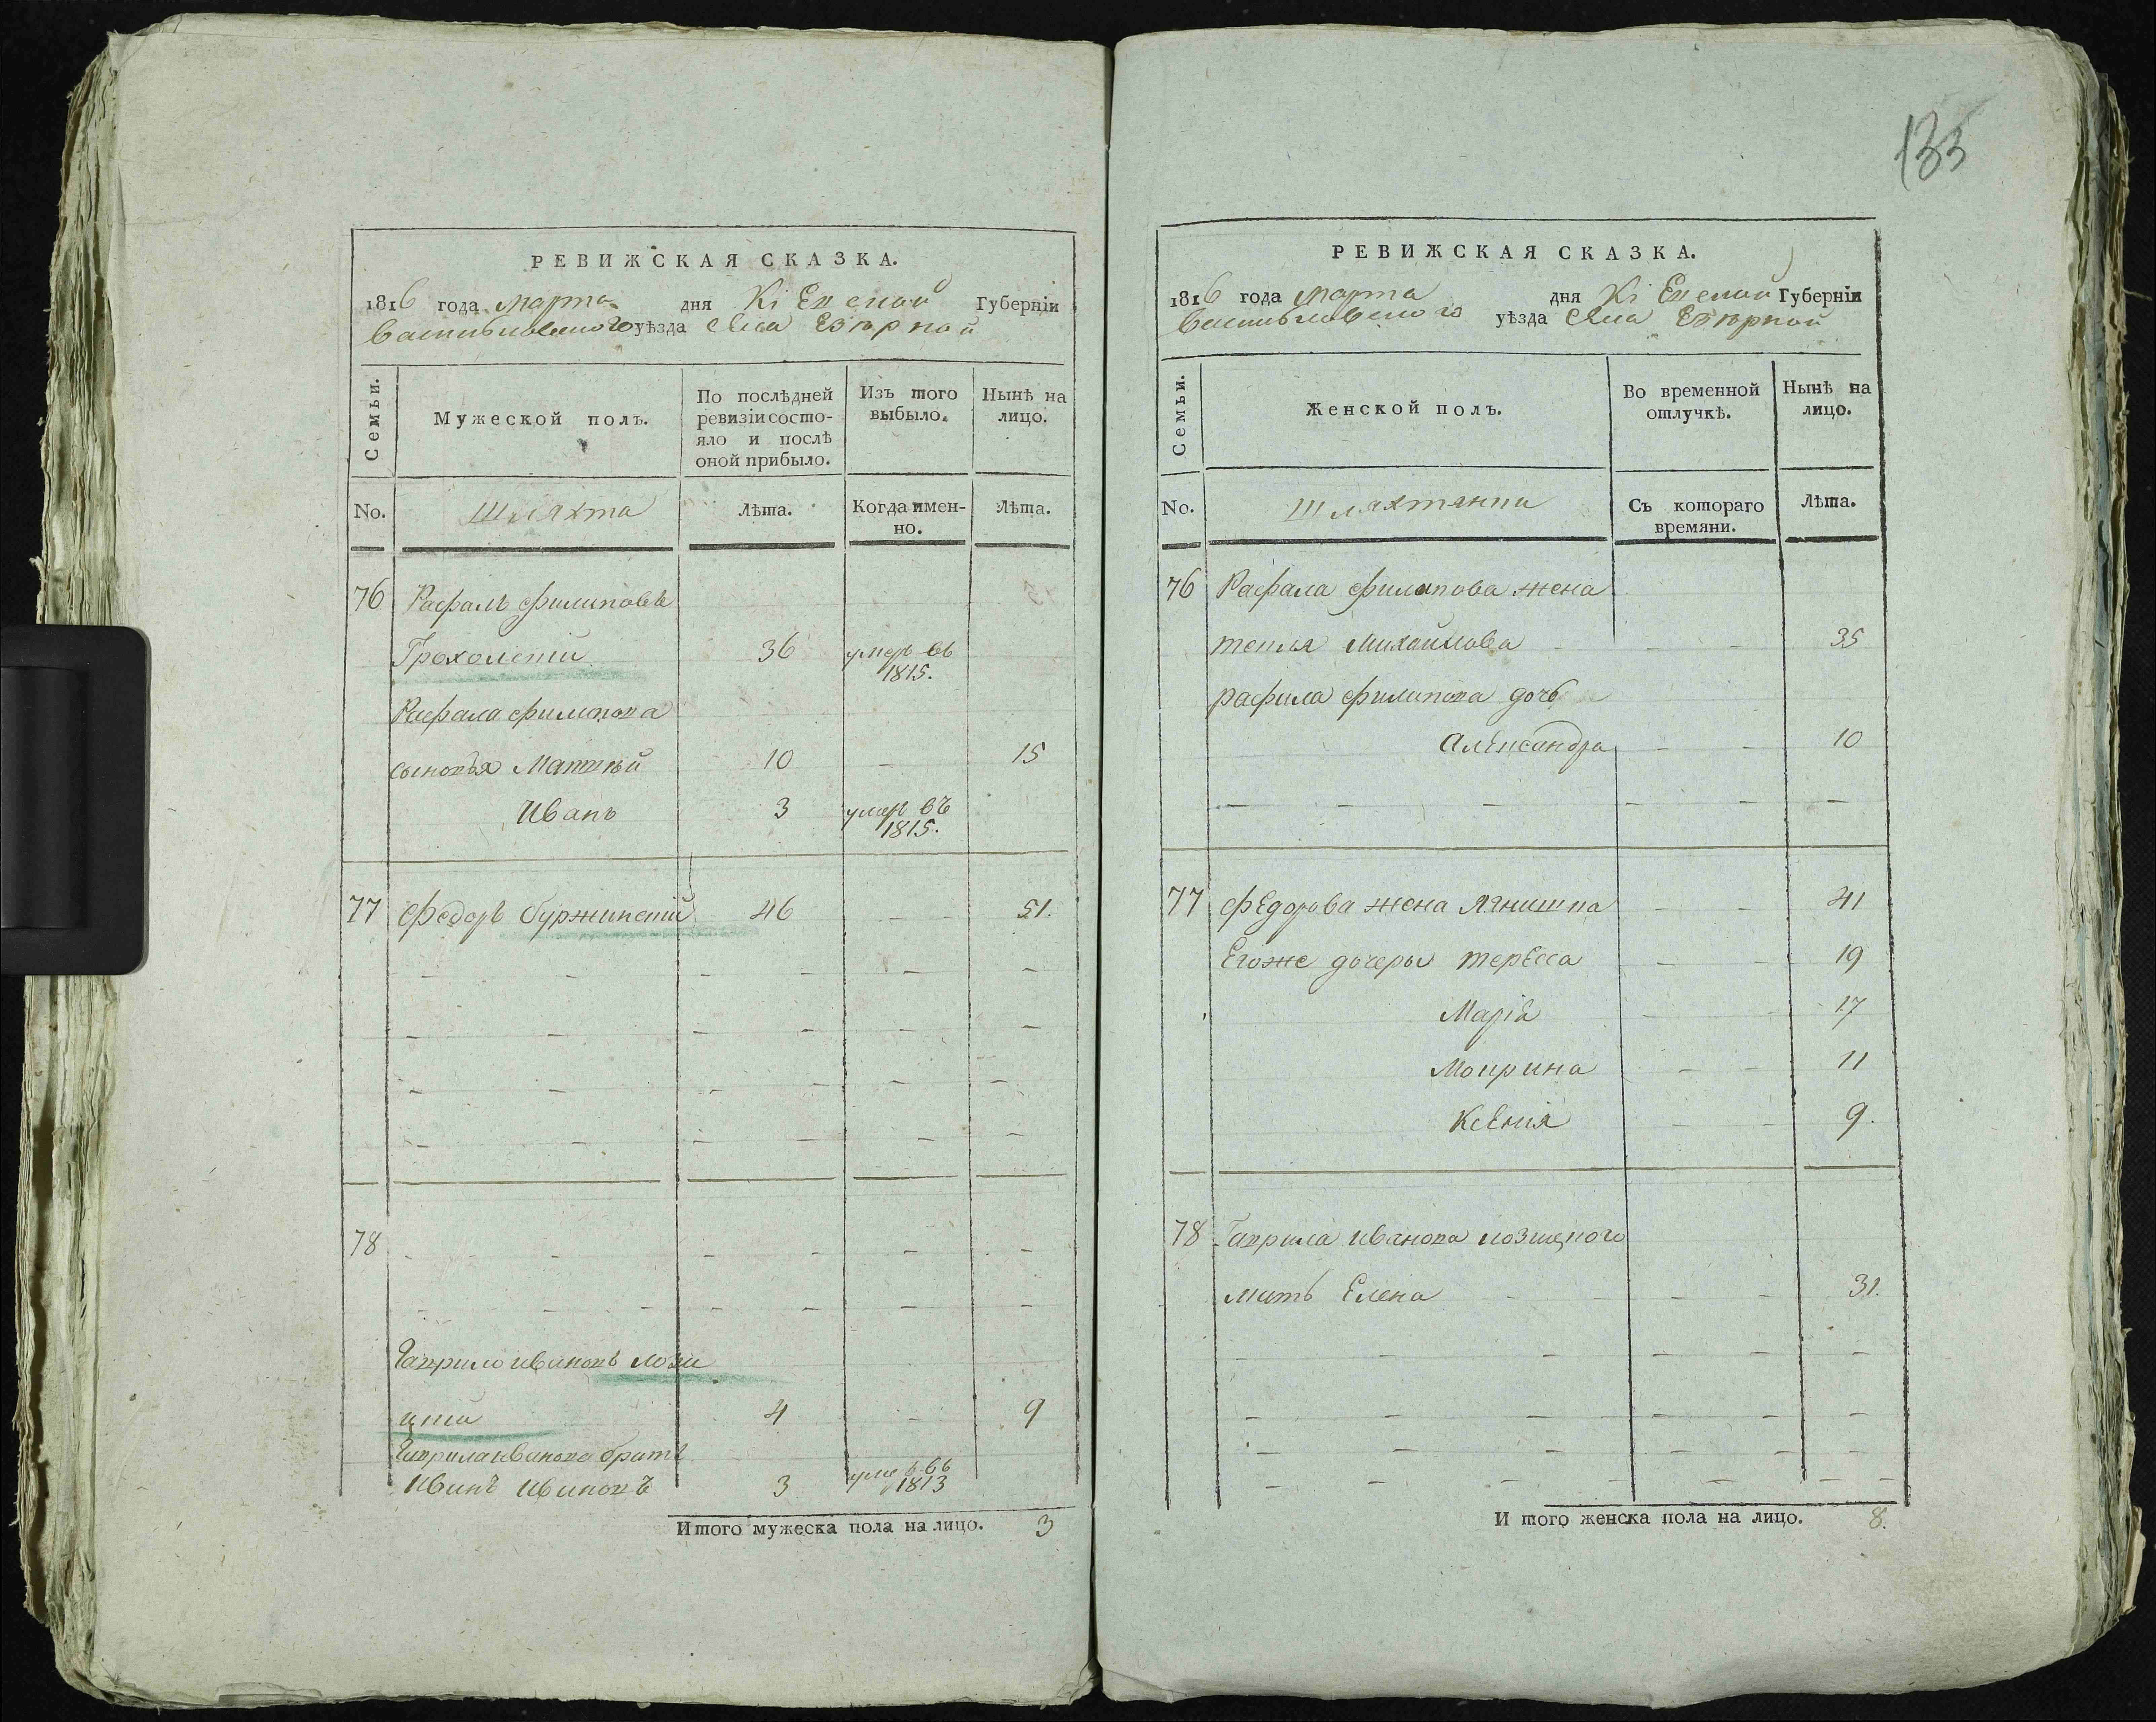 133
РЕВИЖСКАЯ СКАЗКА.
1816 года марта дня Кіевской Губерніи
Васильковского уѣзда села Езерной
Семьи.
Мужеской полъ.
По послѣдней ревизіи состояло и послѣ оной прибыло.
Изъ того выбыло.
Нынѣ на лицо.
No. Шляхта Лѣта. Когда именно. Лѣта.
76 Рафалъ Филиповъ
Грохолскій 36 умеръ въ 1815.
Рафала Филипова
сыновья Матвѣй 10 15
Иванъ 3 умеръ въ 1815.
77 Федоръ Буржинскій 46 51.
78
Гаврило Ивановъ Лози
цкій 4 9
Гаврила Иванова братъ
Иванъ Ивановъ 3 умеръ въ 1813
Итого мужеска пола на лицо. 3
РЕВИЖСКАЯ СКАЗКА.
1816 года марта дня Кіевской Губерніи
Васильковского уѣзда села Езерной
Семьи.
Женской полъ.
Во временной отлучкѣ.
Нынѣ на лицо.
No. Шляхтянки Съ котораго времяни. Лѣта.
76 Рафала Филипова жена
текля Михайлова 35
рафала Филипова дочь
Александра 10
77 Федорова жена Ягнишка 41
Егоже дочеры терееса 19
Маріа 17
Мокрина 11
Ксенія 9.
78 Гаврила Иванова Лозицкого
мать Елена 31.
Итого женска пола на лицо. 8.